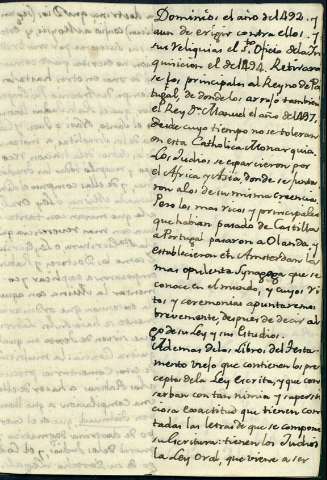 Dominios el año de 1492. y
aun de erigir contra ellos, y
sus Reliquias el Sto. Oficio de la In
quisicion el de 1494. Retiraron
se los principales al Reyno de Por
tugal, de donde los arrojò tambien
el Rey Dn. Manuel el año de 1497.
desde cuyo tiempo no se toleran
en esta Catholica Monarquia.
Los Judios se esparcieron por
el Africa y Asia, donde se junta
ron a los de su misma creencia.
Pero los mas ricos, y principales
que habian pasado de Castilla
a Portugal pasaron a Olanda, y
establecieron en Amsterdan la
mas opulenta Synagoga que se
conoce en el mundo, y cuyos ri
tos y ceremonias apuntaremos
brevemente, despues de decir al
go de su Ley y sus Estudios.
Ademas de los Libros del Testa
mento viejo que contienen los pre
ceptos de la Ley Escrita, y que con
serban con tan nimia y supersti
ciosa exactitud que tienen con
tadas las letras de que se compone
su Escritura: tienen los Judios
la Ley Oral, que viene a ser